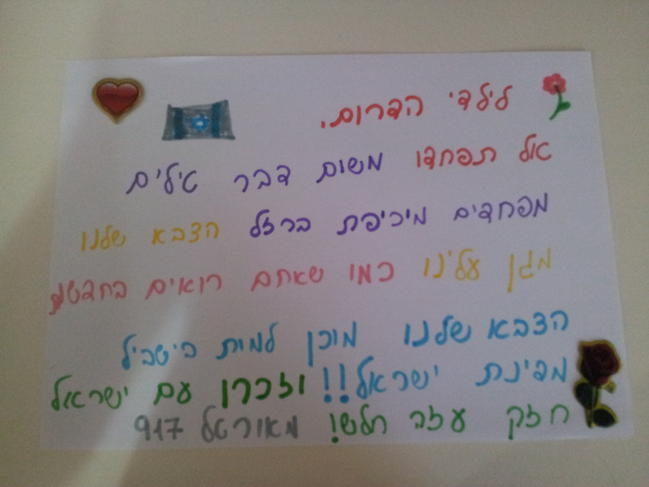 לילדי הדרום.
אל תפחדו משום דבר טילים
מפחדים מיכיפת ברזל הצבא שלנו
מגן עלינו כמו שאתם רואים בחדשות
הצבא שלנו מוכן למות בישביל
מדינת ישראל!! וזכרו עם ישראל
חזק עזה חלש! מאוריאל 917